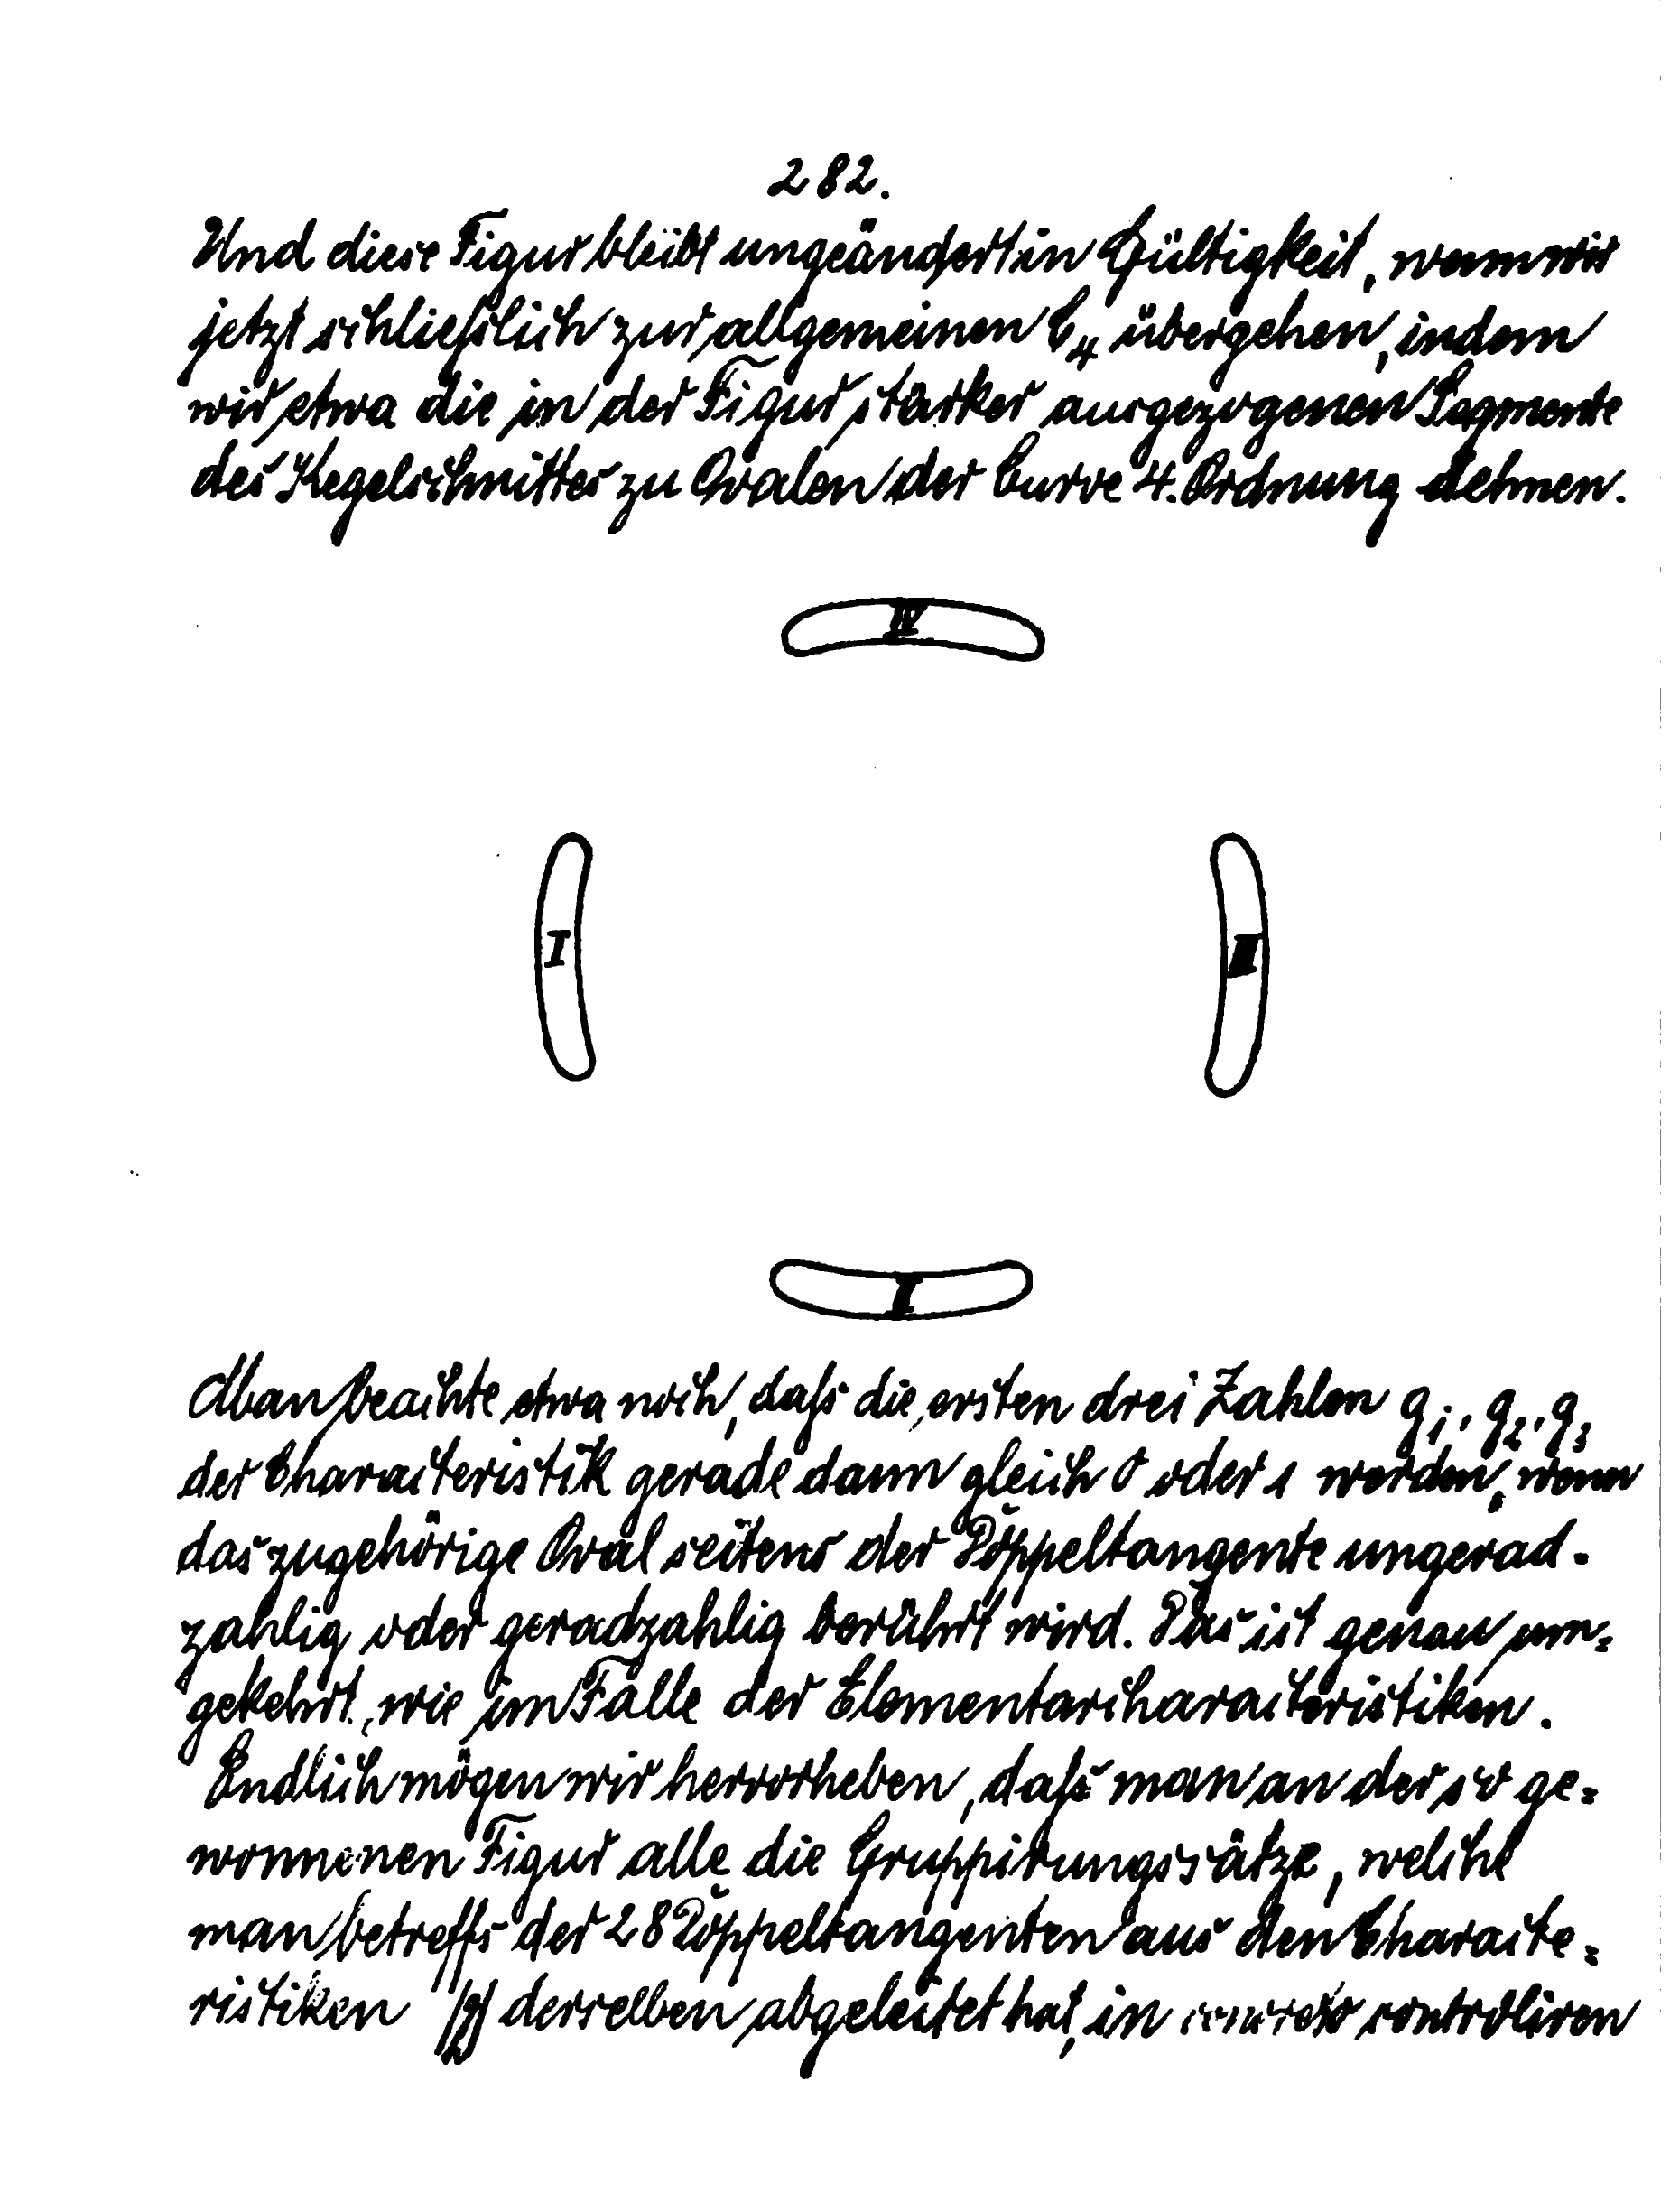 282.
Und diese Figur bleibt ungeändert in Gültigkeit, wenn wir
jetzt schliefslich zur allgemeinen C₄ übergehen, indem
wir etwa die in der Figur stärker ausgezogenen Segmente
des Kegelschnittes zu Ovalen der Curve 4. Ordnung dehnen.
IV
I
III
II
Man beachte etwa noch, dafs die ersten drei Zahlen g₁, g₂, g₃
der Charakteristik gerade dann gleich 0 oder 1 werden, wenn
das zugehörige Oval seitens der Doppeltangente ungerad-
zahlig oder geradzahlig berührt wird. Das ist genau um-
gekehrt, wie im Falle der Elementarcharakteristiken.
Endlich mögen wir hervorheben, dafs man an der so ge-
wonnenen Figur alle die Gruppirungssätze, welche
man betreffs der 28 Doppeltangenten aus den Charakte-
ristiken derselben abgeleitet hat, in concreto controliren